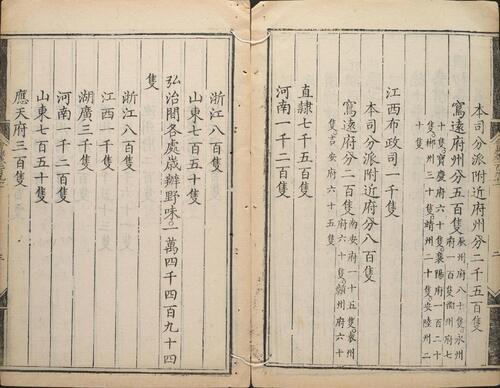 本司分派附近府州分二千五百隻
寫遠府州分五百隻
辰州府八十隻永州
府一百隻衡州府七
十隻寶慶府六十隻襄陽府一百二十
隻郴州三十隻靖州二十隻安陸州二
十隻
江西布政司一千隻
本司分派附近府分八百隻
寫遠府分二百隻
南安府一十五隻袁州
府六十隻贛州府六十
隻吉安府六十五隻
直隷七千五百隻
河南一千二百隻
浙江八百隻
山東七百五十隻
弘治間各處歲辦野味一萬四千四百九十四
隻
浙江八百隻
江西一千隻
湖廣三千隻
河南一千二百隻
山東七百五十隻
應天府三百隻